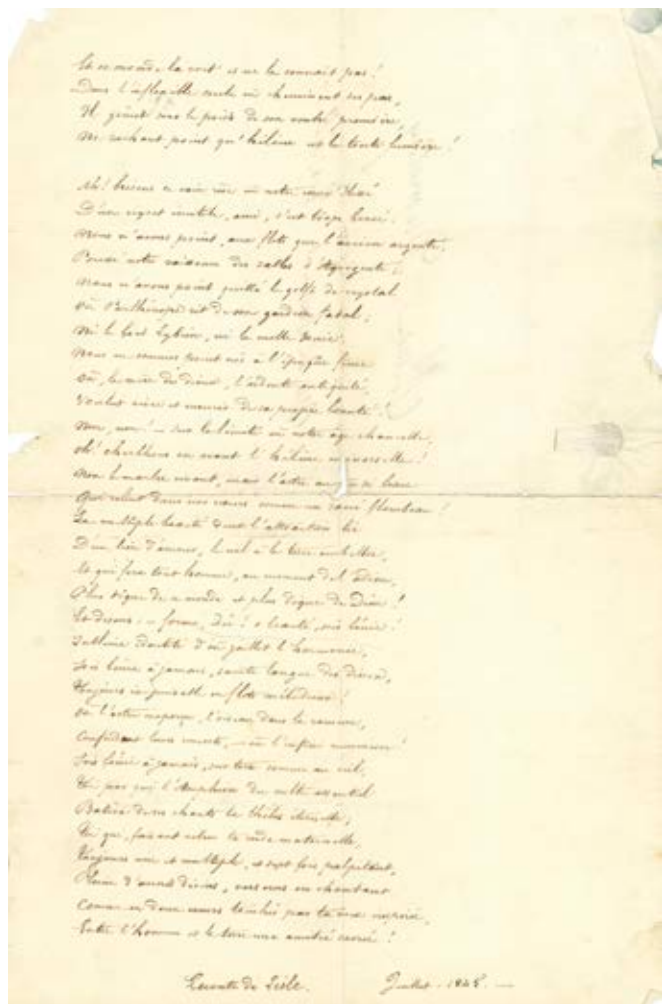 Et ce monde la voit et ne la connait pas!
Dans l'inflexible où cheminent ses pas,
Il gémit sous le poids de son ombre première,
Ne sachant point qu'hélène est la toute lumière!
Ah! en vain notre
D'un regret inutile, ami, c'est trop
Nous n'avons point, aux flots que l'aurore argente,
Poussé notre vaisseau des sables d'Agrigente;
Nous n'avons point quitté le golfe de crystal
Où Parthénope rit de son gardien fatal;
Ni le Lybien, ni la molle
Nous ne sommes point nés à l'époque
Où, la mère des dieux, l'ardente antiquité,
Voulut vivre et mourir de sa propre beauté!
Non, non! – sur la limite où notre âge chancelle,
Oh! cherchons en avant l'hélène universelle!
Non le marbre vivant, mais l'astre au
Qui reluit dans nos comme un sacré flambeau!
La multiple beauté dont l'attraction lie
D'un lien d'amour, le ciel à la terre embellie,
Et qui fera tout homme, au moment de l'adieu,
Plus digne de ce monde et plus digne de Dieu!
Et disons: – o forme, o beauté, sois bénie!
Sublime d'où jaillit l'harmonie,
Sois bénie à jamais, sainte langue des dieux,
Toujours en flots mélodieux!
Où l'astre l'oiseau dans la ramure,
Confondent leurs – où l'infini murmure!
Sois bénie à jamais, sur terre comme au ciel,
Toi par qui l'Amphion du culte essentiel
Bâtira de ses chants la Thèbes éternelle;
Toi qui, faisant la maternelle,
Toujours une et multiple, et sept fois palpitant,
Pleine d'accords divins, en chantant
Comme en deux par ta voix
Entre l'homme et la terre une amitié sacrée!
Leconte de Lisle. Juillet. 1845. —